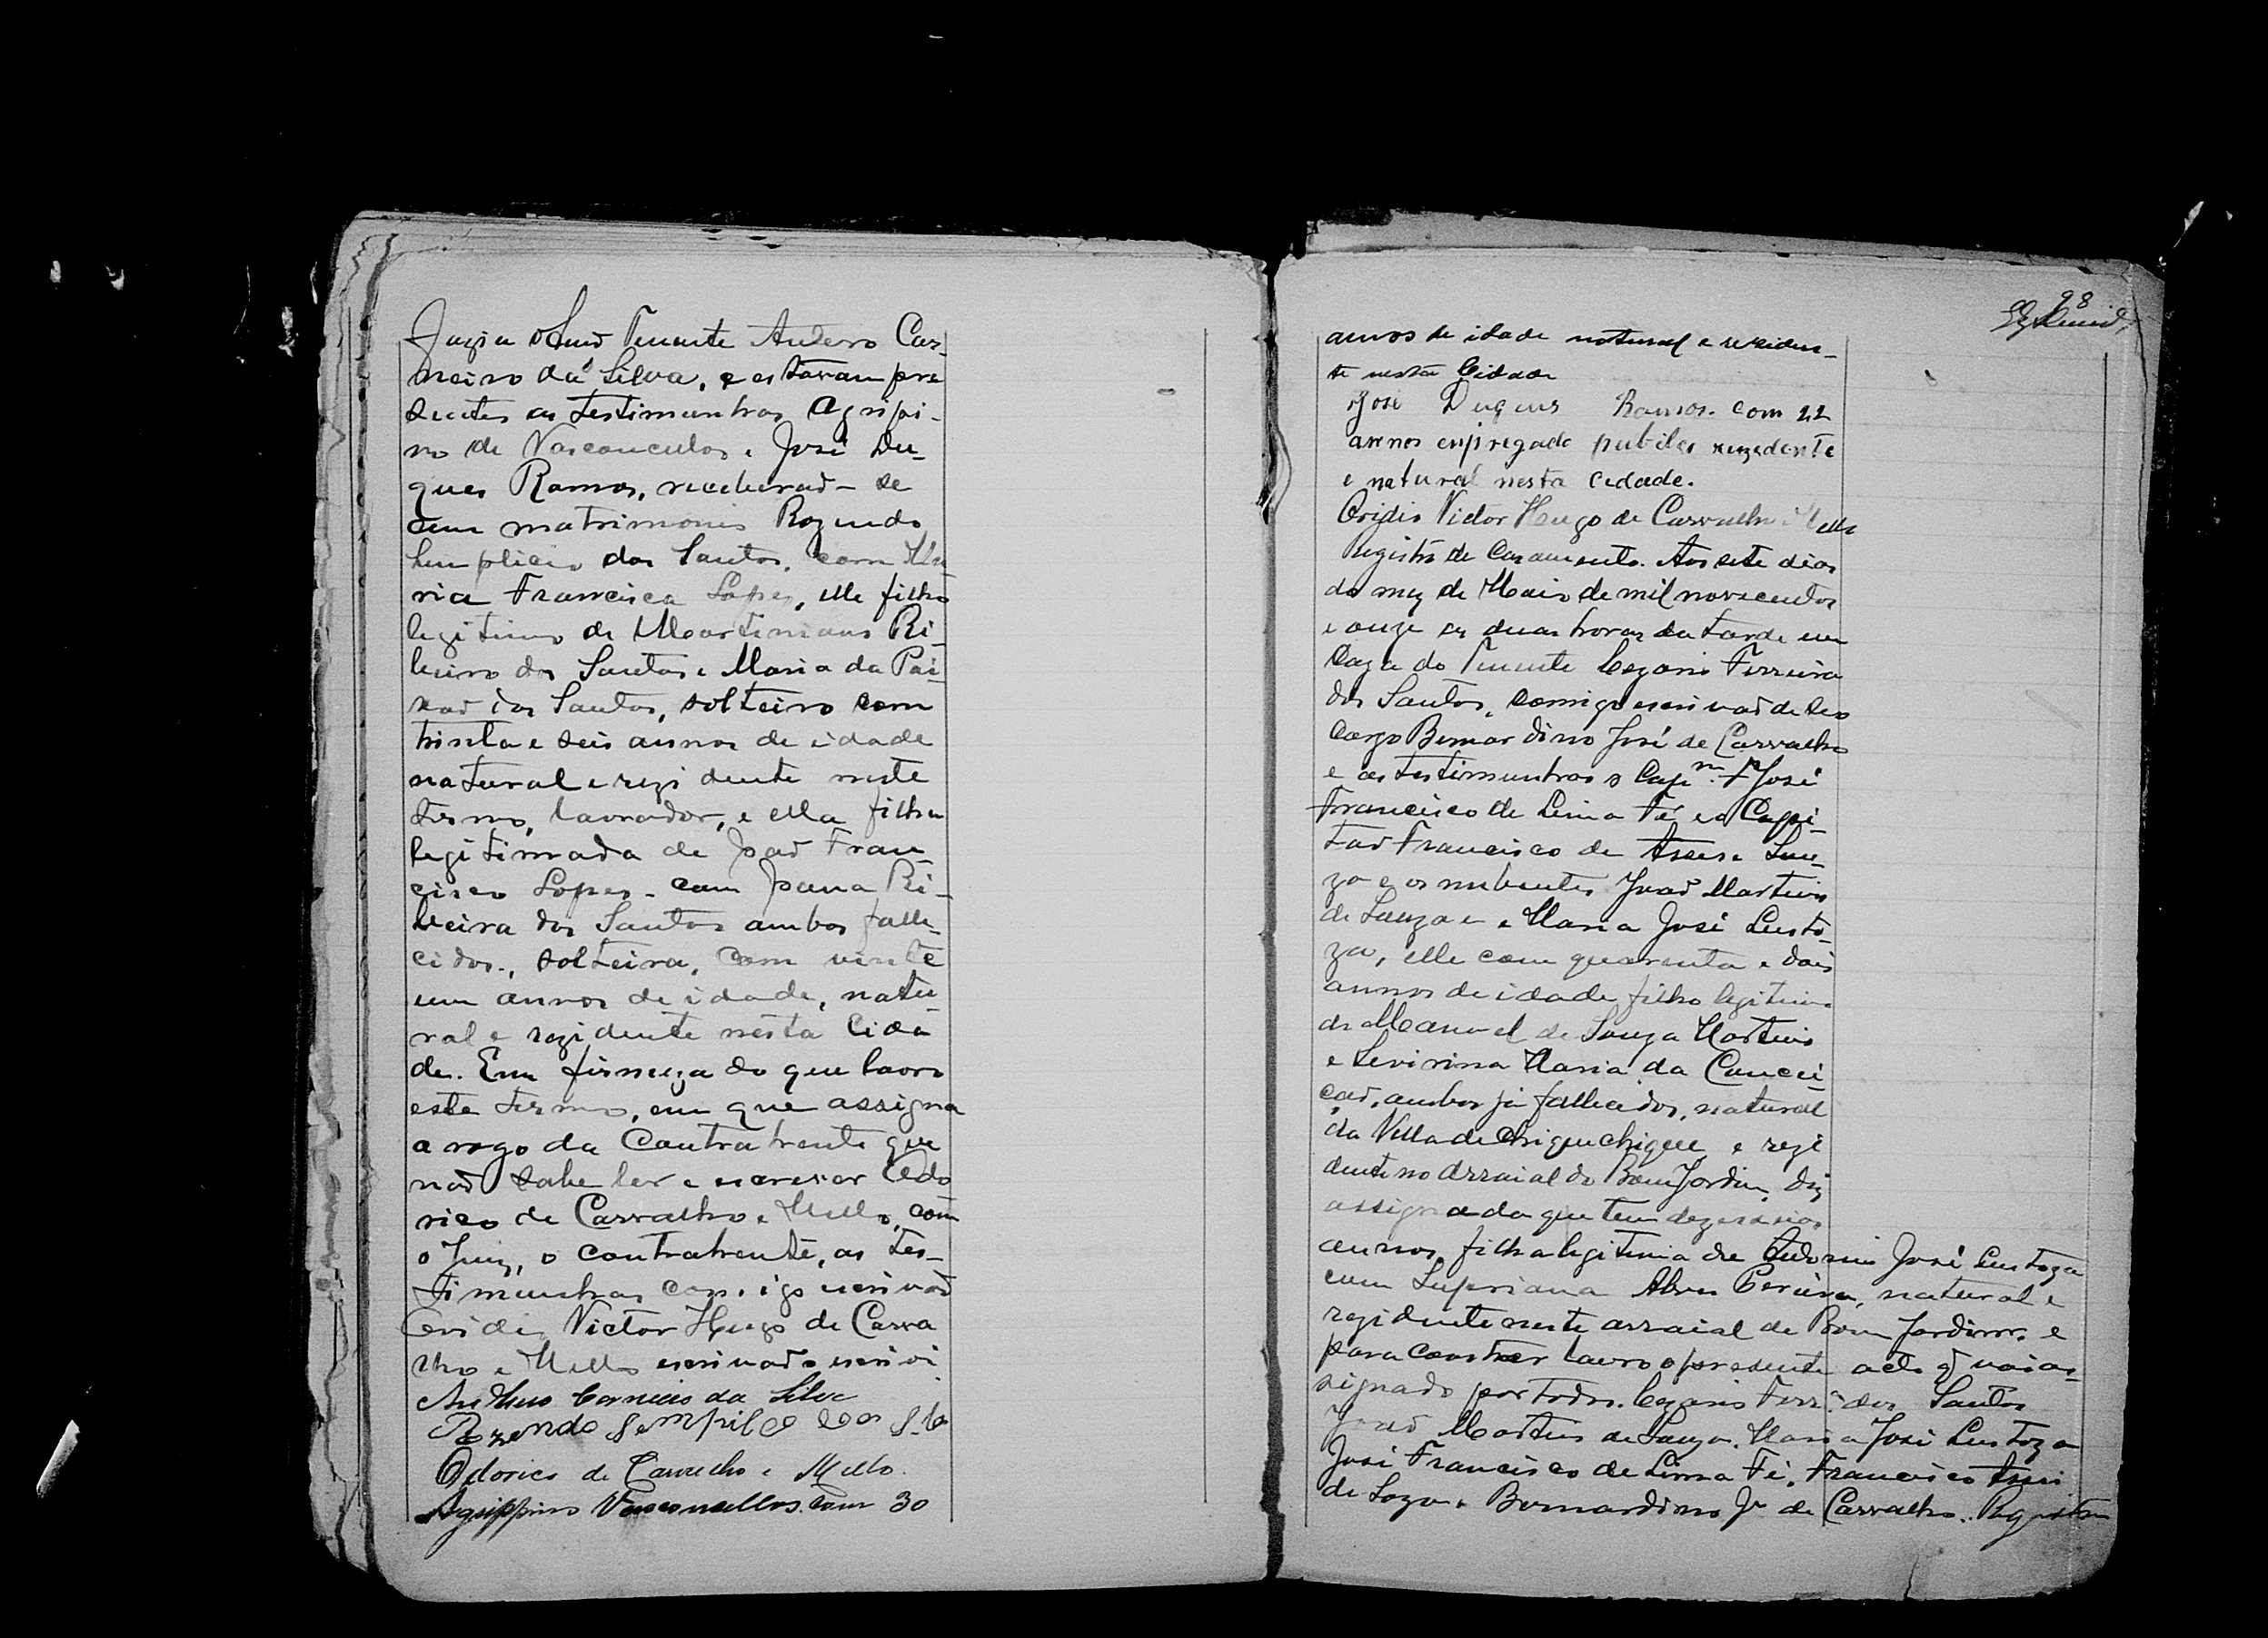 Juizo o Snr Tenente Antero Car-
neiro da Silva, e estavam pre
sentes as testimunhas Agripi-
no de Vasconcelos e José Du-
ques Ramos, receberaõ-se
em matrimonio Rozendo
Simplicio dos Santos, com Ma-
ria Francisca Lopes, elle filho
legitimo de Martiniano Ri-
beiro dos Santos e Maria da Pai-
xaõ dos Santos, solteiro com
trinta e seis annos de idade
natural e rezidente neste
termo, lavrador, e ella filha
legitimada de Joaõ Fran-
cisco Lopes - com Joana Ri-
beira dos Santos ambos falle-
cidos., solteira, com vinte
um annos de idade, natu-
ral e rezidente nesta Cida
de. Em firmeza do que lavro
este termo, em que assigna
a rogo da Contratrente que
naõ sabe ler e escrever Odo
rico de Carvalho e Mello, com
o Juiz, o contratrente, as tes-
timunhas comigo escrivaõ
Ovidio Victor Hugo de Carva
lho e Mello escrivaõ o escrivi
Anthero Carneiro da Silva
Odorico de Carvalho e Mello.
Agrippino Vasconcellos. com 30
98
annos de idade natural e residen-
te nesta Cidade
José Duques Ramos. com 22
annos enpregado publico rezedente
e natural nesta cidade.
Ovidio Victor Hugo de Carvalho e Mello
Registro de Casamento. Aos sete dias
do mez de Maio de mil novecentos
e onze as duas horas da tarde em
Caza do Tenente Cezario Ferreira
dos Santos, comigo escrivaõ de seo
Cargo Bernardino José de Carvalho
e as testimunhas o Capm. José
Francisco de Lima Fé e o Capi-
taõ Francisco de Assis e Sou-
za e os nubentes Joaõ Martins
de Souza e e Maria José Lusto-
za, elle com quarenta e dois
annos de idade filho legitimo
de Manoel de Souza Martins
e Sevirina Maria da Concei-
çaõ, ambos já fallecidos, natural
da Villa de Chiquechique e rezi
dente no Arraial do Bom Jordim, diz
assignada que tem dezeseis
annos, filha legitima de Antonio José Lustoza
com Alves natural e
rezidente neste arraial de Bom Jordim. e
para Constar lavro o presente acto q̃ vai as-
signado por todos. Cezario Ferra. dos Santos
Joaõ Martins de Souza. Maria José Lustoza
José Francisco de Lima Fé, Francisco Assis
de Soza. Bernardino Je de Carvalho.